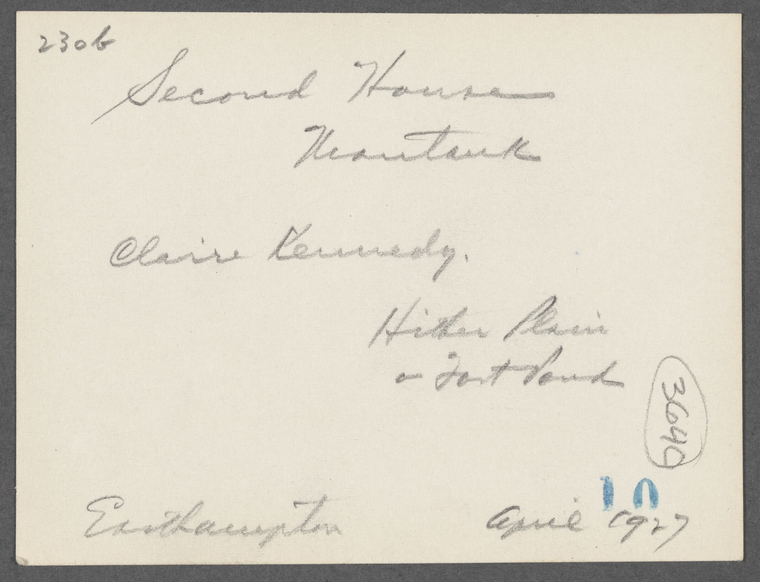 230b
Second House
Montauk
Claire Kennedy.
Hither Plain
or Fort Pond
3640
10
Easthampton April 1927